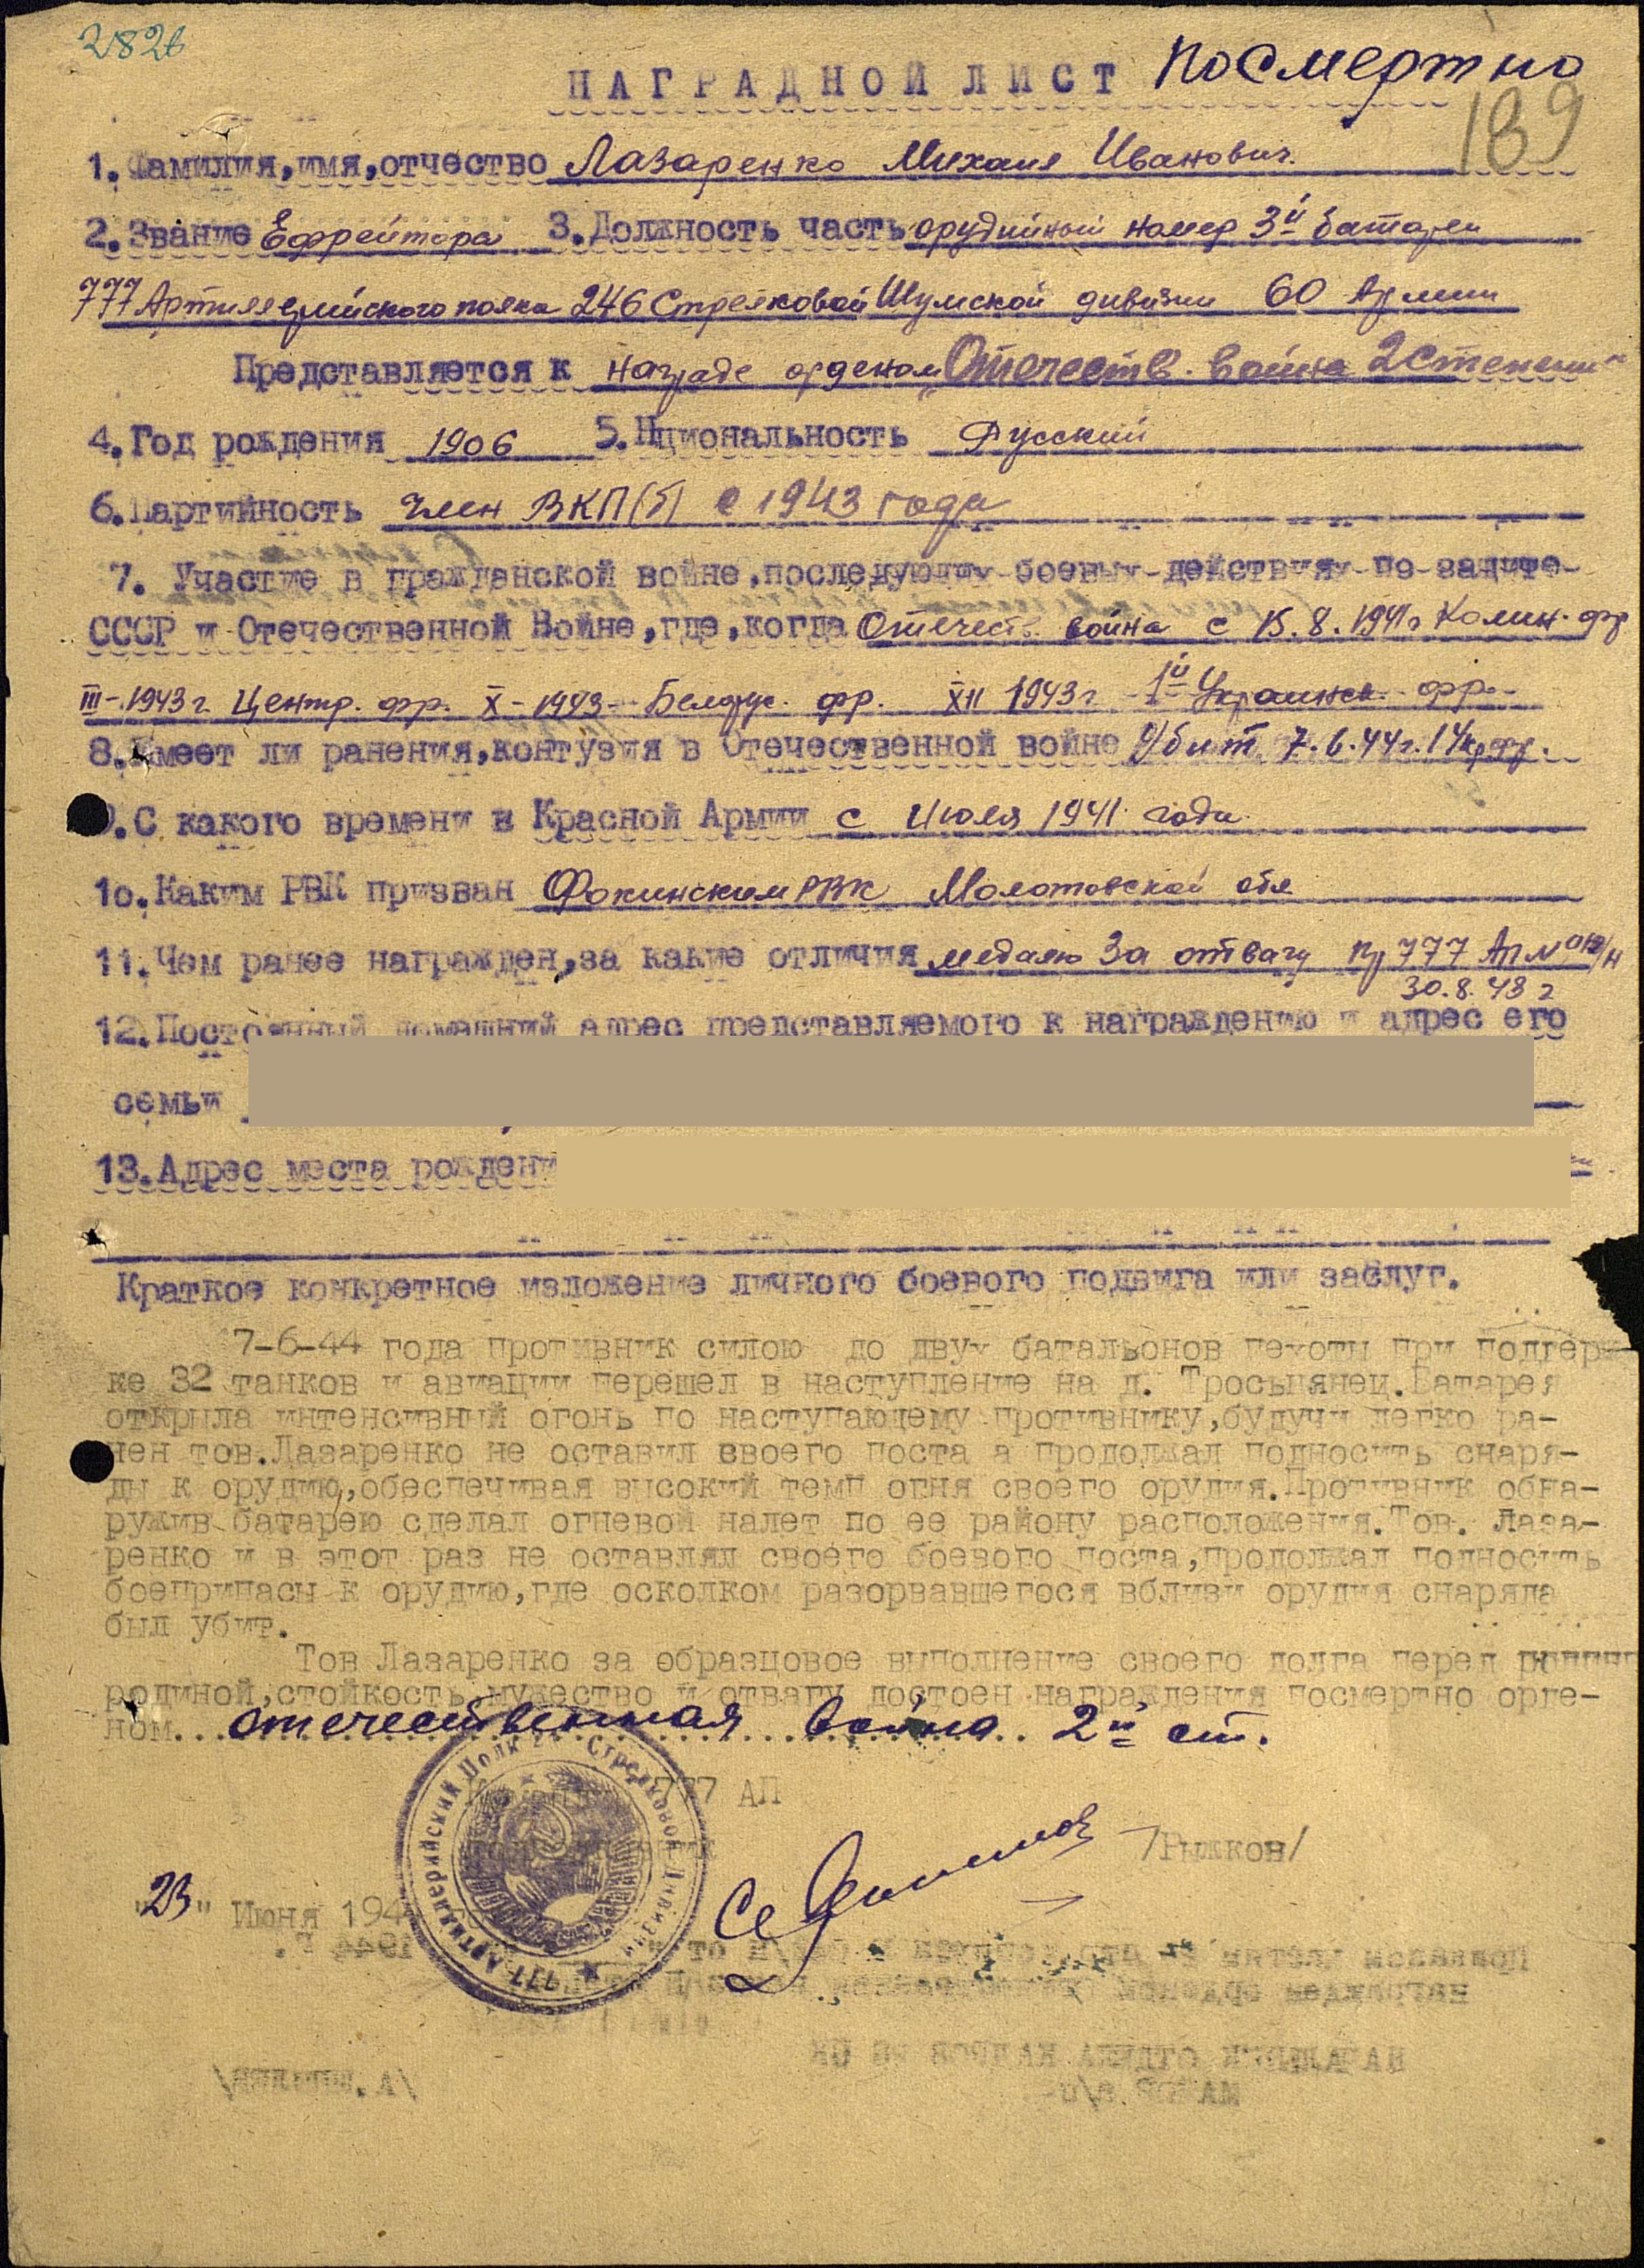 2826
НАГРАДНОЙ ЛИСТ Посмертно
189
1. Фамилия,имя,отчество Лазаренко Михаил Иванович.
2. Звание Ефрейтора 3. Должность часть орудийный номер 3й батареи
777 Артиллерийского полка 246 Стрелковой Шумской дивизии 60 Армии
Представляется к награде орденом „Отечеств. война 2 степени"
4. Год рождения 1906 5. Нциональность Русский
6. Партийность член ВКП(б) с 1943 года
7. Участие в гражданской войне,последующих боевых действиях по защите
СССР и Отечественной Войне,где,когда Отечеств. война с 15.8.1941г Калин. фр
III-1943 г. Центр. фр. X-1943 Белорус. фр. XII 1943 г 1й Украинск. фр.
8. Имеет ли ранения,контузия в Отечественной войне Убит 7.6.44г. 1 Укр фр.
9. С какого времени в Красной Армии с Июля 1941 года
1о. Каким РВК призван Фокинским РВК Молотовской обл
11. Чем ранее награжден,за какие отличия медалью За отвагу Пр 777 АП №
30.8.43 г
12. Постоянный домашний адрес представляемого к награждению и адрес его
семьи
13. Адрес места рождени
Краткое конкретное изложение личного боевого подвига или заслуг.
7-6-44 года противник силою до двух батальонов пехоты при поддерж
ке 32 танков и авиации перешел в наступление на д. Тросьцянец.Батарея
открыла интенсивный огонь по наступающему противнику,будучи легко ра-
нен тов.Лазаренко не оставил своего поста а продолжал подносить снаря-
ды к орудию,обеспечивая высокий темп огня своего орудия.Противник обна-
ружив батарею сделал огневой налет по ее району расположения.Тов. Лаза-
ренко и в этот раз не оставлял своего боевого поста,продолжал подносить
боеприпасы к орудию,где осколком разорвавшегося вблизи орудия снаряда
был убит.
Тов Лазаренко за образцовое выполнение своего долга перед
родиной,стойкость мужество и отвагу достоен награждения посмертно орде-
ном... отечественная война 2й ст.
777 АП
777 Артиллерийский Полк Стрелковой Дивизии
/Рыжков/
"23" Июня 194